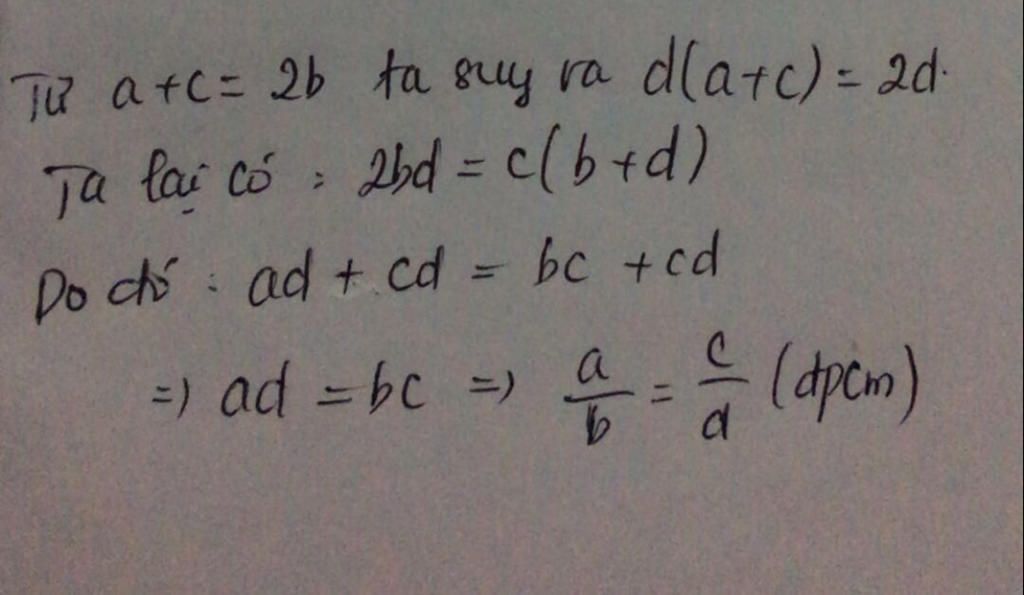 Từ a+c = 2b ta suy ra d(a+c) = 2d.
Ta lại có : 2bd = c(b+d)
Do đó : ad + cd = bc + cd
=> ad = bc => a/b = c/d (dpcm)